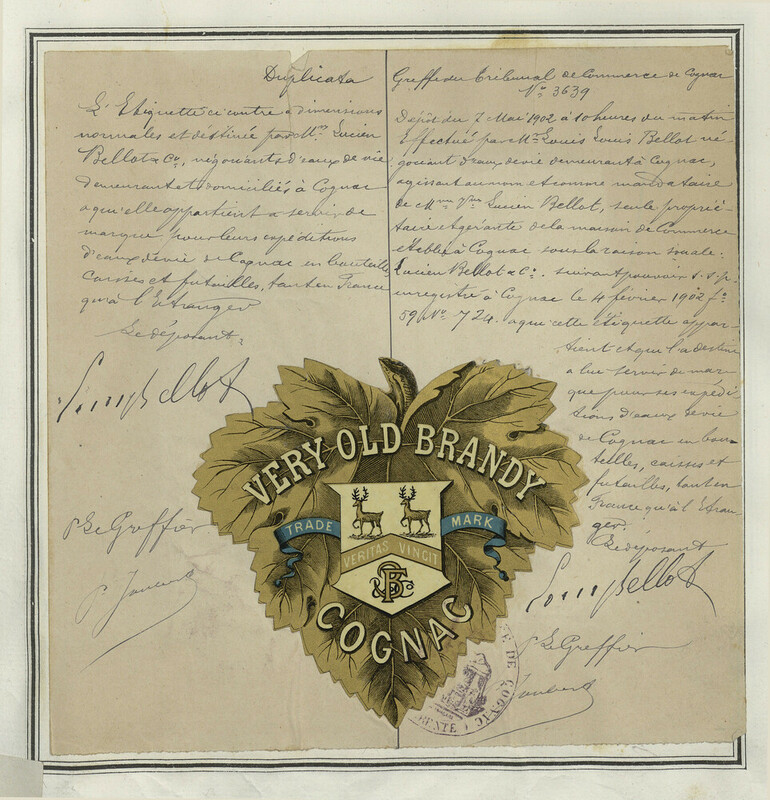 Duplicata
L'Etiquette ci contre a dimensions
normales et destinée par Mme Lucien
Bellot & Cie, négociants d'eaux de vie
demeurant et domiciliés à Cognac
a qui elle appartient a servir de
marque pour leurs expéditions
d'eaux de vie de Cognac en bouteilles
caisses et futailles, tant en France
qu'à l'Etranger
Le déposant.
Louis Bellot
p Le Greffier
Greffe du Tribunal de Commerce de Cognac
No 3639
Dépôt du 7 Mai 1902 à 10 heures du matin
Effectué par Mr Louis Louis Bellot né-
gociant d'eaux de vie demeurant à Cognac,
agissant au nom et comme mandataire
de Mme Vve Lucien Bellot, seule proprié-
taire et gérante de la maison de Commerce
établie à Cognac sous la raison sociale:
Lucien Bellot & Cie. suivant pouvoir s.s.p.
enregistré à Cognac le 4 février 1902 fo
59 No 724. a qui cette étiquette appar-
tient et qui l'a destine
a lui servir de mar-
que pour ses expédi-
tions d'eaux de vie
de Cognac en bou-
teilles, caisses et
futailles, tant en
France qu'à l'Etran-
ger.
Le déposant
Louis Bellot
p Le Greffier
VERY OLD BRANDY
TRADE MARK
VERITAS VINCIT
COGNAC
DE COGNAC